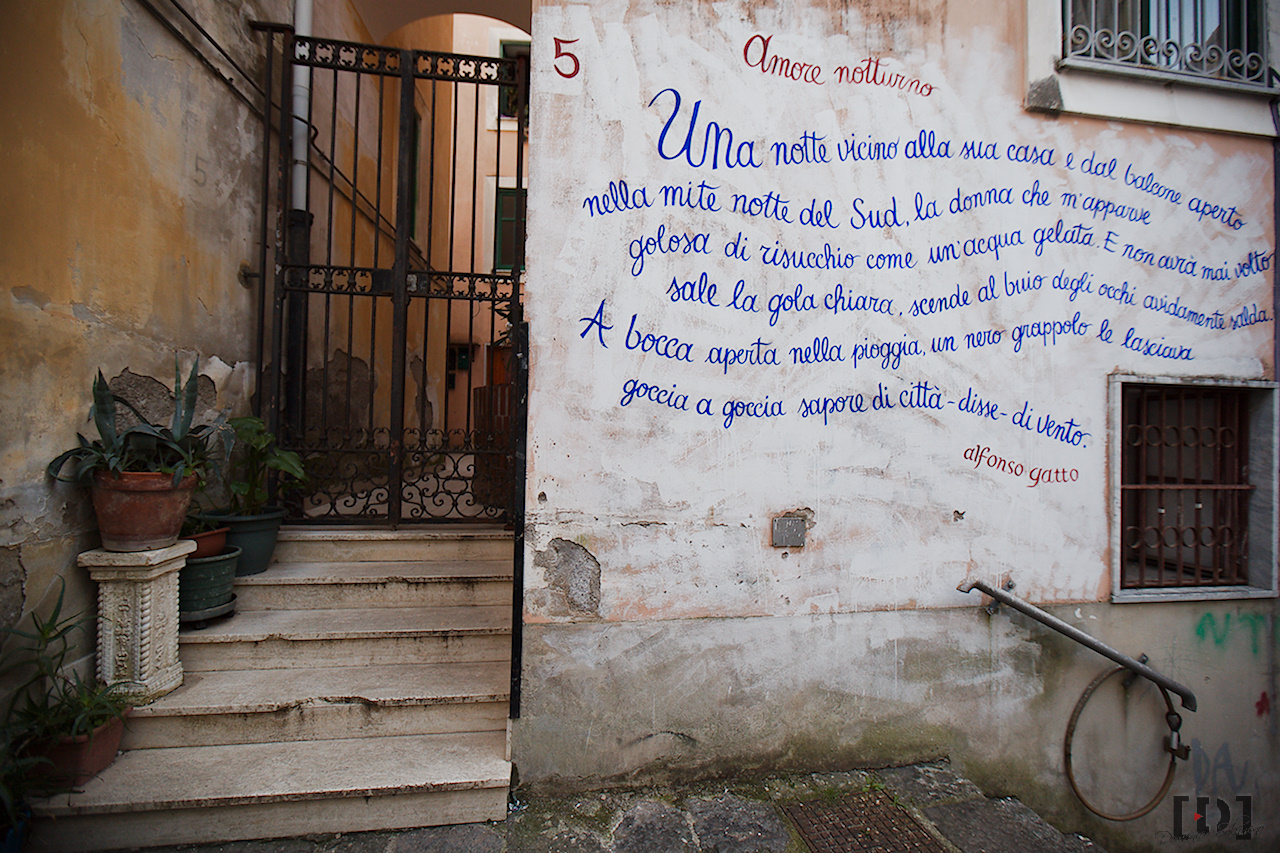 5
Amore notturno
Una notte vicino alla sua casa e dal balcone aperto
nella mite notte del Sud, la donna che m'apparve
golosa di risucchio come un'acqua gelata. E non avrà mai volto
sale la gola chiara, scende al buio degli occhi avidamente salda.
A bocca aperta nella pioggia, un nero grappolo le lasciava
goccia a goccia sapore di città - disse - di vento.
alfonso gatto
5
NT
[D]